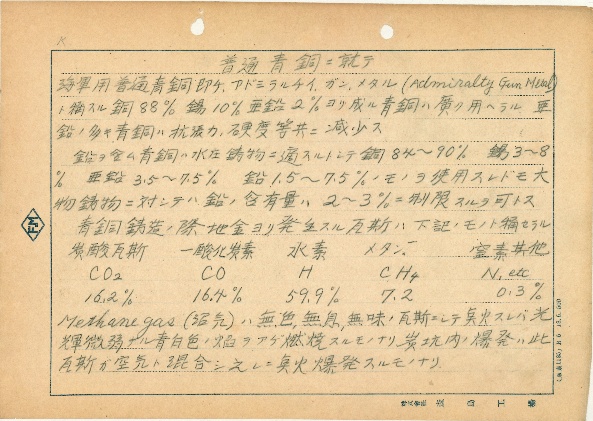 K
普通青銅ニ就テ
海軍用普通青銅即チ、アドミラルチイ、ガン、メタル (Admiralty Gun Metal)
ト稱スル銅88% 錫10% 亜鉛2%ヨリ成ル青銅ハ廣ク用ヘラル 亜
鉛ノ多キ青銅ハ抗張力、硬度等共ニ減少ス
鉛ヲ含ム青銅ハ水圧鋳物ニ適スルトシテ銅84〜90% 錫3〜8
% 亜鉛 3.5〜7.5% 鉛 1.5〜7.5%ノモノヲ使用スレドモ大
物鋳物ニ対シテハ鉛ノ含有量ハ 2〜3%ニ制限スルヲ可トス
青銅鋳造ノ際地金ヨリ発生スル瓦斯ハ下記ノモノト稱セラル
炭酸瓦斯 一酸化炭素 水素 メタン 窒素其他
CO2 CO H CH4 N, etc
16.2% 16.4% 59.9% 7.2 0.3%
Methane gas (沼気) ハ無色、無臭、無味ノ瓦斯ニシテ点火スレバ光
輝微弱ナル青白色ノ焔ヲアゲ燃焼スルモノナリ、炭坑内ノ爆発ハ此
瓦斯ガ空気ト混合シ之レニ点火爆発スルモノナリ.
FM
株式会社